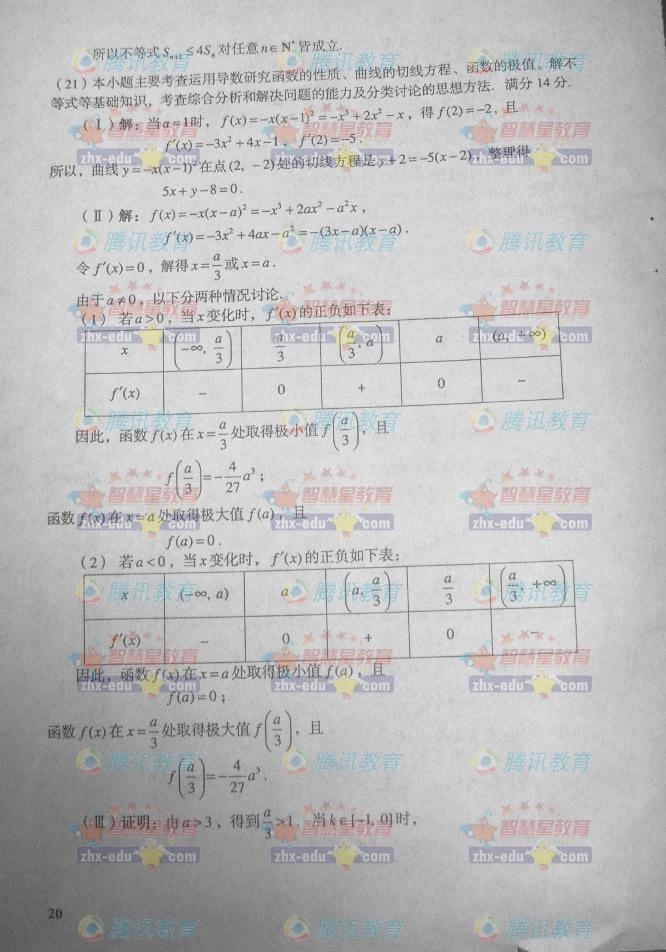 所以不等式 Sₙ₊₁≤4Sₙ 对任意 n∈N* 皆成立.
(21) 本小题主要考查运用导数研究函数的性质、曲线的切线方程、函数的极值、解不
等式等基础知识，考查综合分析和解决问题的能力及分类讨论的思想方法. 满分 14 分.
(Ⅰ) 解: 当a=1时, f(x)=-x(x-1)²=-x³+2x²-x, 得 f(2)=-2, 且
f′(x)=-3x²+4x-1, f′(2)=-5.
所以，曲线 y=-x(x-1)² 在点(2, -2)处的切线方程是 y+2=-5(x-2), 整理得
5x+y-8=0.
(Ⅱ) 解: f(x)=-x(x-a)²=-x³+2ax²-a²x,
f′(x)=-3x²+4ax-a²=-(3x-a)(x-a).
令 f′(x)=0, 解得 x=a/3 或 x=a.
由于 a≠0, 以下分两种情况讨论.
(1) 若a>0, 当x变化时, f′(x)的正负如下表:
x (-∞, a/3) a/3 (a/3, a) a (a, +∞)
f′(x) - 0 + 0 -
因此, 函数 f(x)在 x=a/3 处取得极小值 f(a/3), 且
f(a/3)=-4/27 a³;
函数 f(x)在 x=a 处取得极大值 f(a), 且
f(a)=0.
(2) 若a<0, 当x变化时, f′(x)的正负如下表:
x (-∞, a) a (a, a/3) a/3 (a/3, +∞)
f′(x) - 0 + 0 -
因此, 函数 f(x)在 x=a 处取得极小值 f(a), 且
f(a)=0;
函数 f(x)在 x=a/3 处取得极大值 f(a/3), 且
f(a/3)=-4/27 a³.
(Ⅲ) 证明: 由 a>3, 得到 a/3>1, 当 k∈[-1, 0]时,
20
腾讯教育
智慧星教育
zhx-edu com